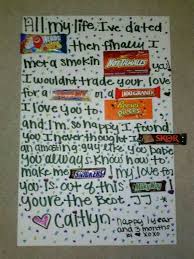 All my life, I've dated
NERDS
then finally I
met a smokin HOT TAMALES
I wouldn't trade your love
for a or a 100 GRAND
I love you to Reese's Pieces
and I'm so happy I found
you I never thought I SKOR
an amazing guy like you
you always know how to
make me SNICKERS my love for
you is out of this MILKY WAY
you're the Best.
Caitlyn
happy 1 year
and 3 months
xoxo